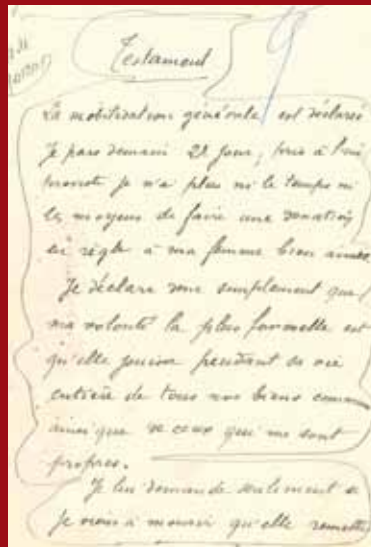 Testament
La mobilisation générale est déclarée
Je pars demain 2e jour, pris à l'im
proviste je n'ai plus ni le temps ni
les moyens de faire une donation
en règle à ma femme bien aimée
Je déclare donc simplement que
ma volonté la plus formelle est
qu'elle jouisse pendant sa vie
entière de tous nos biens commun
ainsi que de ceux qui me sont
propres.
Je lui demande seulement si
je viens à mourir qu'elle remette